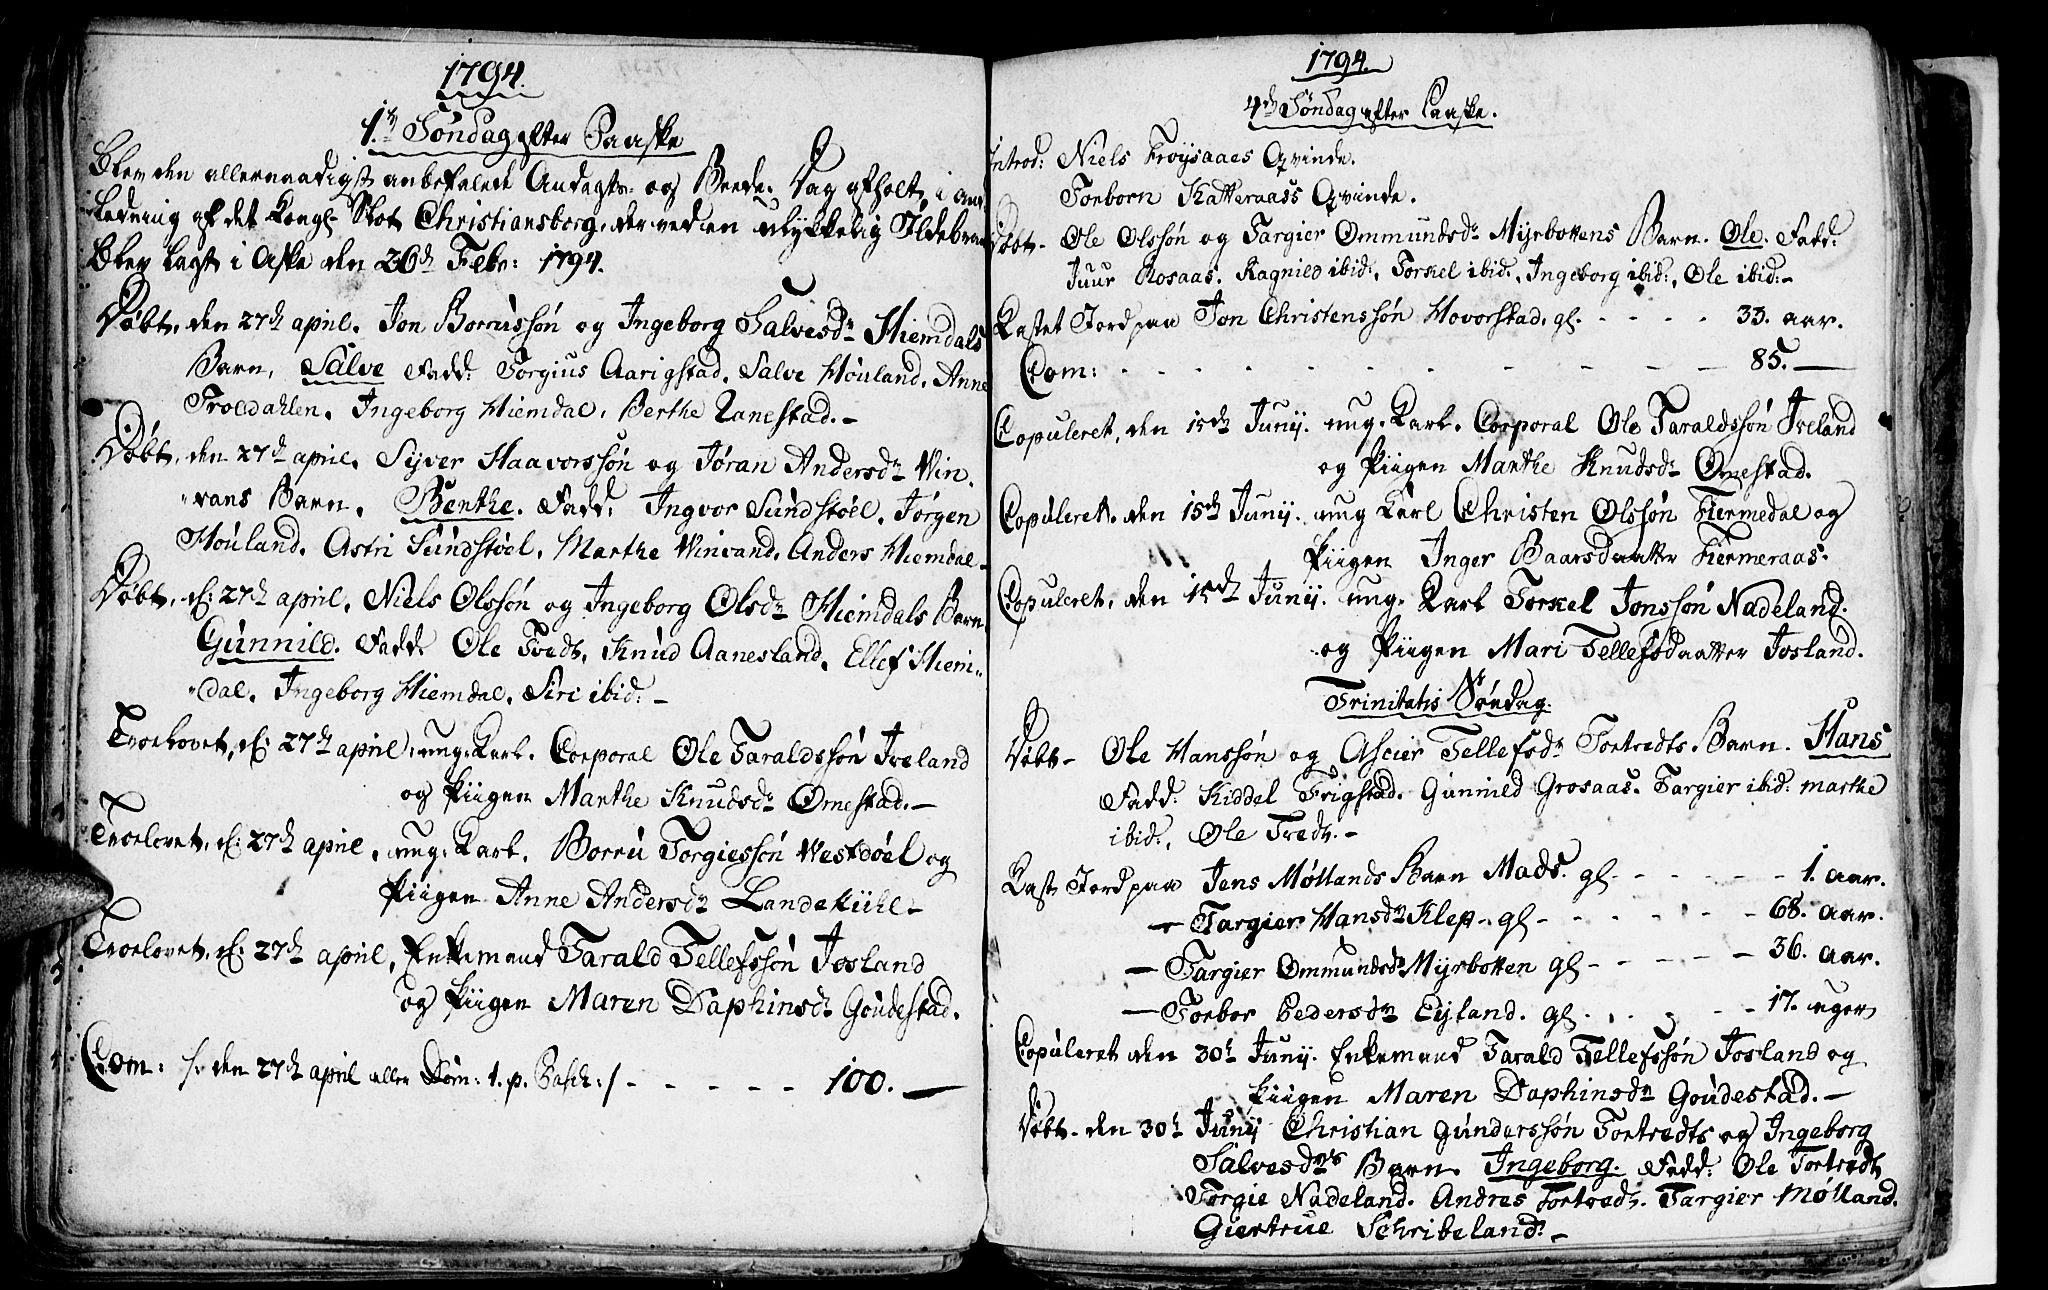 1794.
1.ste Søndag efter Paaske
Blev den allernaadigst anbefalede Andagts- og Beede- Dag afholt, i an-
ledning af det Kongl. Slot Christiansborg, der ved en ulykkelig Ildebrand
blev lagt i Aske den 26de Febr: 1794.
Døbt, den 27de april. Jon Borrussøn og Ingeborg Salvesdr Hiemdals
Barn, Salve Fadd: Torgius Aarigstad, Salve Høuland, Anne
Troldahlen, Ingeborg Hiemdal, Berthe Lanestad.-
Døbt, den 27de april, Syver Haavorssøn og Jøran Andersdr Vin-
-vans Barn, Benthe. Fadd. Ingvor Sundstøel, Jørgen
Høuland, Astri Sundstøel, Marthe Vinvand, Anders Hiemdal-
Døbt, d: 27de april, Niels Olssøn og Ingeborg Olsdr Hiemdals Barn
Gunnild. Fadd: Ole Tvedt, Knud Aanesland, Ellef Hiem-
-dal, Ingeborg Hiemdal, Siri ibid:-
Troelovet, d: 27de april, ung. Karl. Corporal Ole Taraldssøn Ireland
og Piigen Marthe Knudsdr Omestad.-
Troelovet, d: 27de april, ung. Karl, Borru Torgiessøn Vestdøel og
Piigen Anne Andersdr Landekiihl-
Troelovet, d: 27de april, Enkemand Tarald Tellefssøn Josland
og Piigen Maren Daphinsdr Goudestad.
Com: /: den 27de april eller Dom: 1. p. Pasch :/ - - - - - 100.-
1794.
4de Søndag efter Paaske.
Introd: Niels Frøysaaes Qvinde.
Torborn Katteraass Qvinde.
Døbt- Ole Olssøn og Targier Ommundsdr Myrbottens Barn. Ole. Fadd:
Juur Rosaas. Ragnild ibid:, Torkel ibid:, Ingeborg ibid:, Ole ibid:-
Kastet Jord paa Jon Christenssøn Hovorstad, gl. - - - - 33. aar.
Com: - - - - - - - - 85.-
Copuleret, den 15de Junij. ung. Karl. Corporal Ole Taraldssøn Ireland
og Piigen Marthe Knudsdr Omestad.
Copuleret, den 15de Junij. ung Karl Christen Olssøn Fiermedal og
Piigen Inger Baarsdaatter Fiermeraas.
Copuleret, den 15de Junij. ung. Karl Torkel Jonssøn Nadeland.
og Piigen Mari Tellefsdaatter Josland.
Trinitatis Søndag.
Døbt- Ole Hanssøn og Asgier Tellefsdr Tortvedts Barn. Hans
Fadd: Kiddel Frigstad. Gunnild Grosaas. Targier ibid: marthe
ibid:, Ole Tvedt.-
Kast Jord paa Jens Møllands Barn Mads. gl - - - - - 1. aar.
- Targier Hansdr Klep. gl - - - - - 68. aar.
- Targier Ommundsdr Myrbotten gl - - - - - 36. aar.
- Torbor Pedersdr Eyland. gl - - - - 17. uger
Copuleret den 30te Junij. Enkemand Tarald Tellefssøn Josland og
Piigen Maren Daphinsdr Goudestad.-
Døbt- den 30te Junij Christian Gunderssøn Tortvedts og Ingeborg
Salvesdrs Barn. Ingeborg. Fadd: Ole Tortvedt
Torgie Nadeland. Andres Tortvedt. Targier Mølland.
Giertrue Schribeland:-